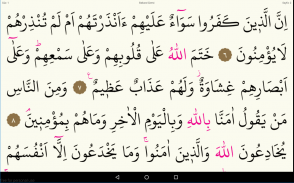 اِنَّ الَّذٖينَ كَفَرُوا سَوَٓاءٌ عَلَيْهِمْ ءَاَنْذَرْتَهُمْ اَمْ لَمْ تُنْذِرْهُمْ
لَا يُؤْمِنُونَ ٦ خَتَمَ اللّٰهُ عَلٰى قُلُوبِهِمْ وَعَلٰى سَمْعِهِمْ وَعَلٰٓى
اَبْصَارِهِمْ غِشَاوَةٌ وَلَهُمْ عَذَابٌ عَظٖيمٌ ٧ وَمِنَ النَّاسِ
مَنْ يَقُولُ اٰمَنَّا بِاللّٰهِ وَبِالْيَوْمِ الْاٰخِرِ وَمَا هُمْ بِمُؤْمِنٖينَ ٨
يُخَادِعُونَ اللّٰهَ وَالَّذٖينَ اٰمَنُوا وَمَا يَخْدَعُونَ اِلَّٓا اَنْفُسَهُمْ